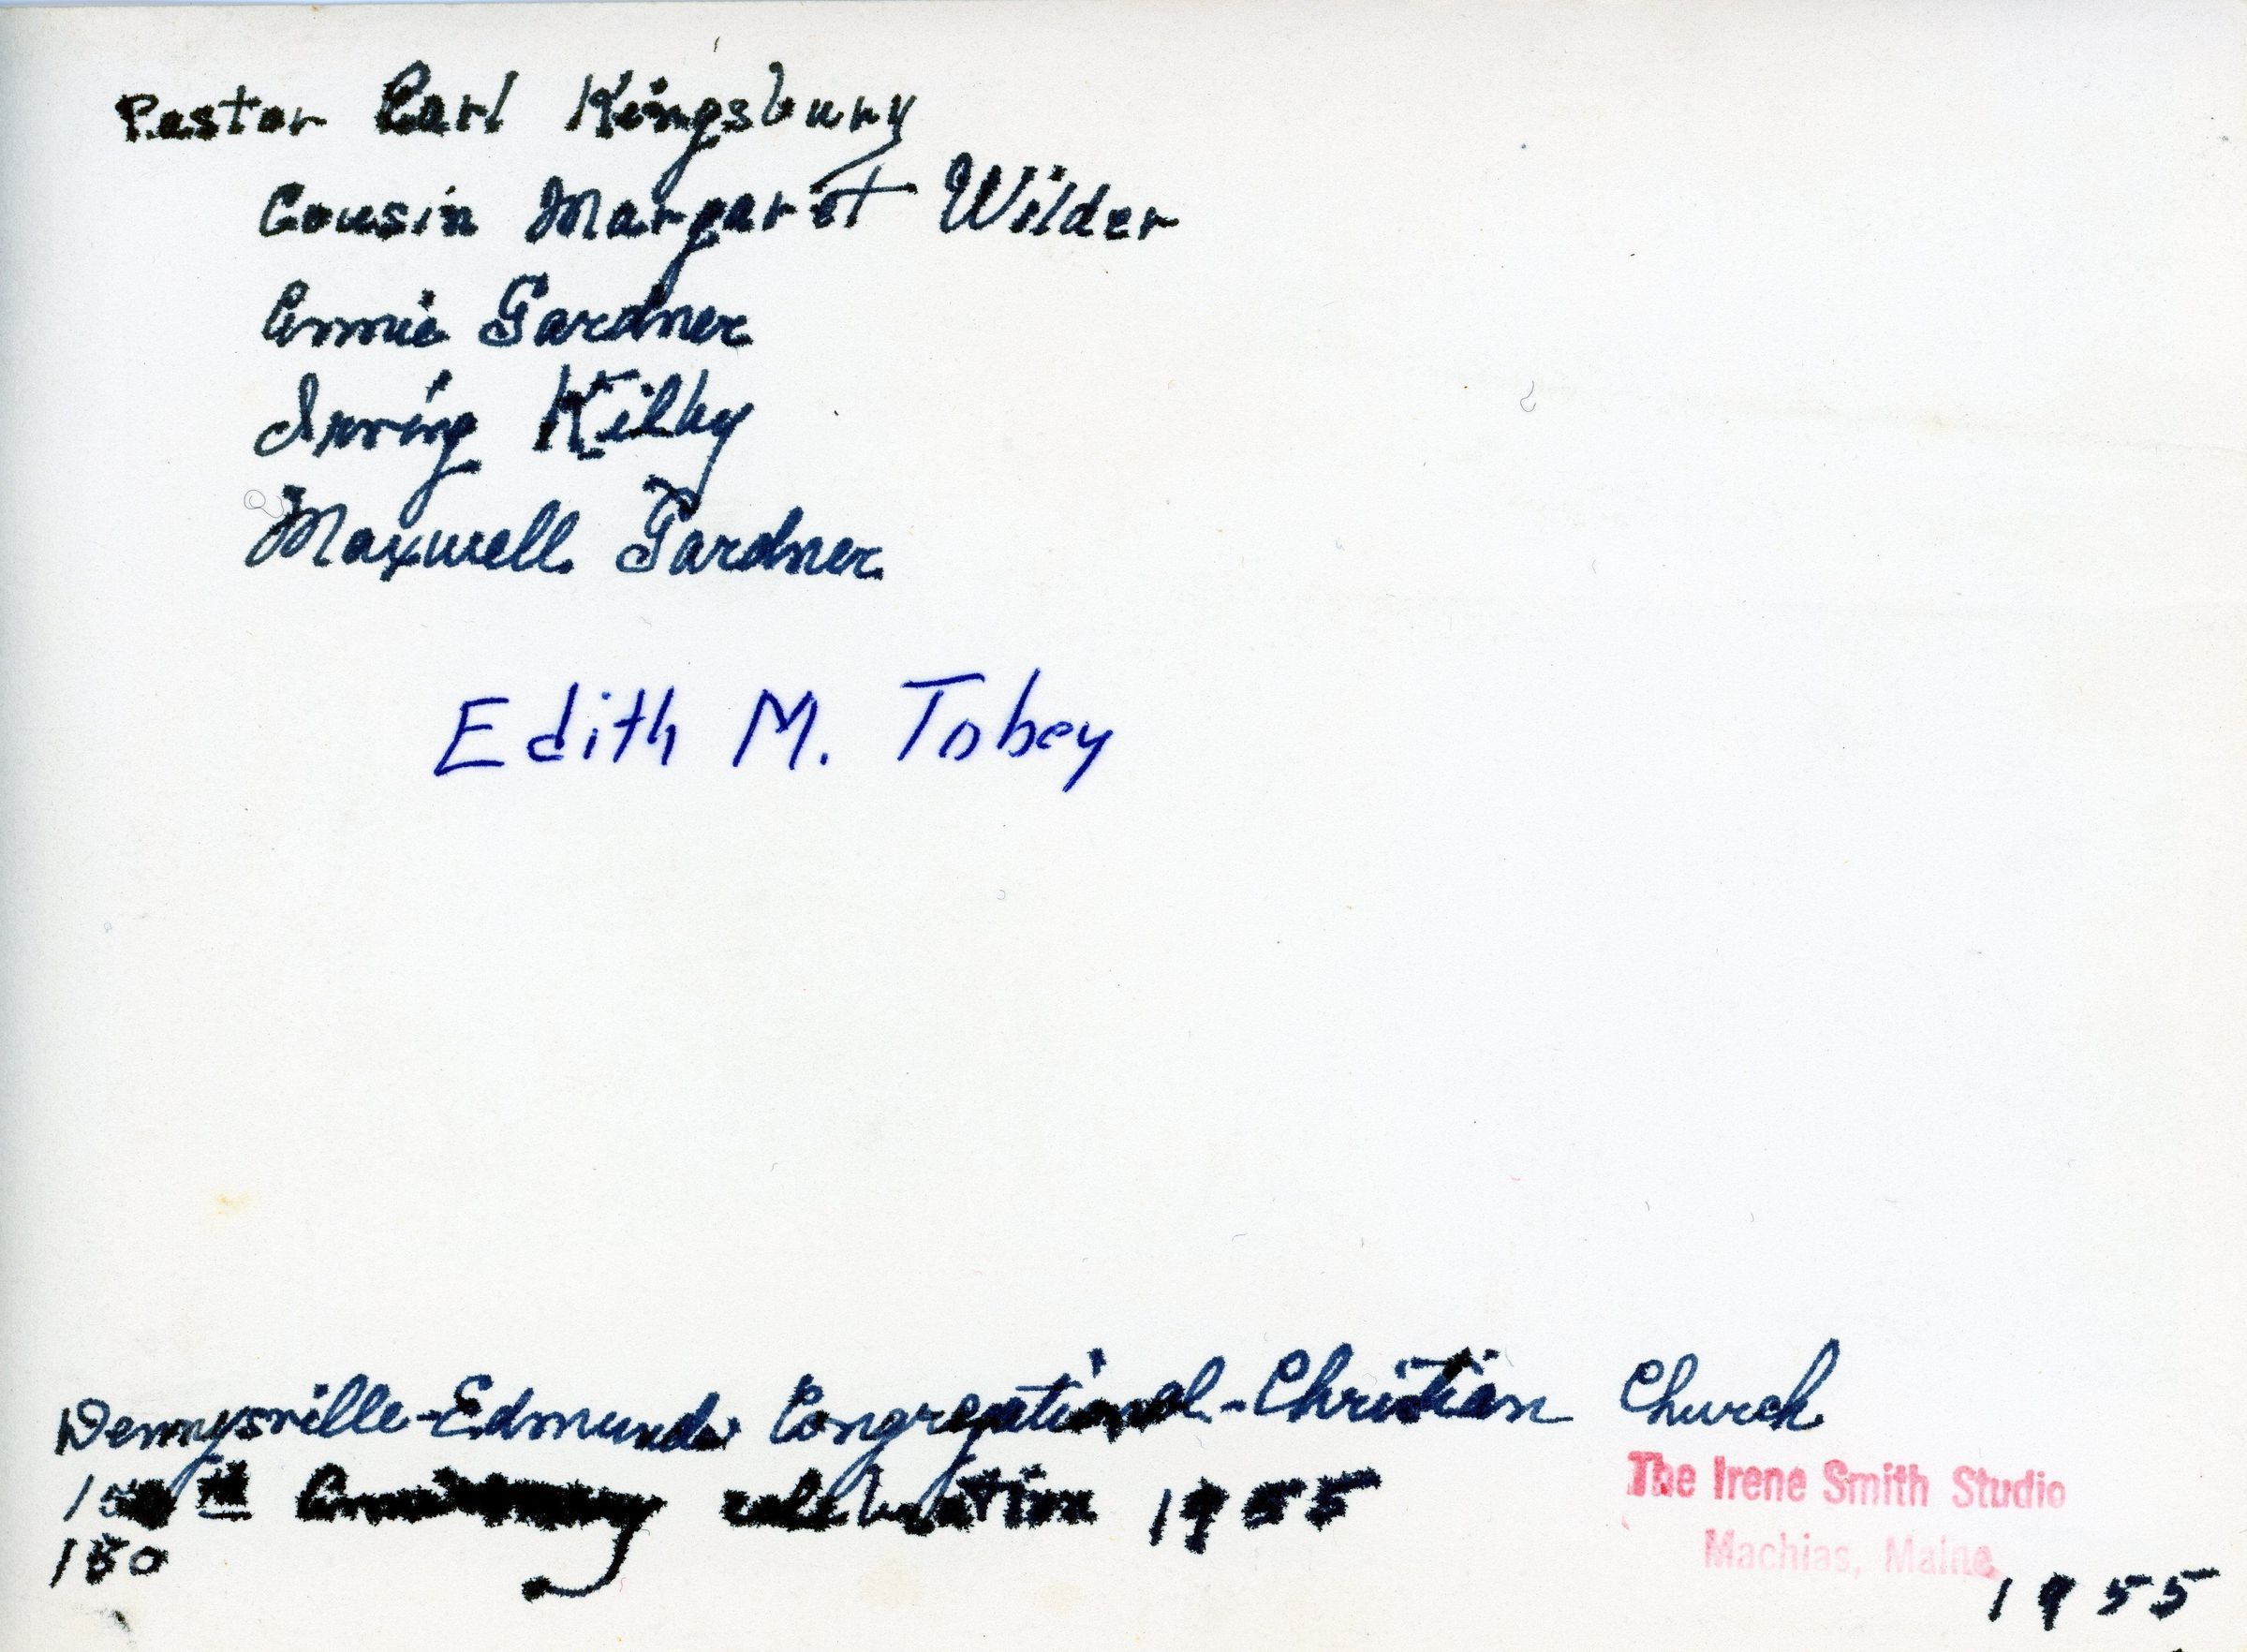 Pastor Carl Kingsbury
Cousin Margaret Wilder
Annie Gardner
Irving Kilby
Maxwell Gardner
Edith M. Tobey
Dennysville-Edmunds Congregational-Christian Church
150th Anniversary celebration 1955
150
The Irene Smith Studio
Machias, Maine
1955